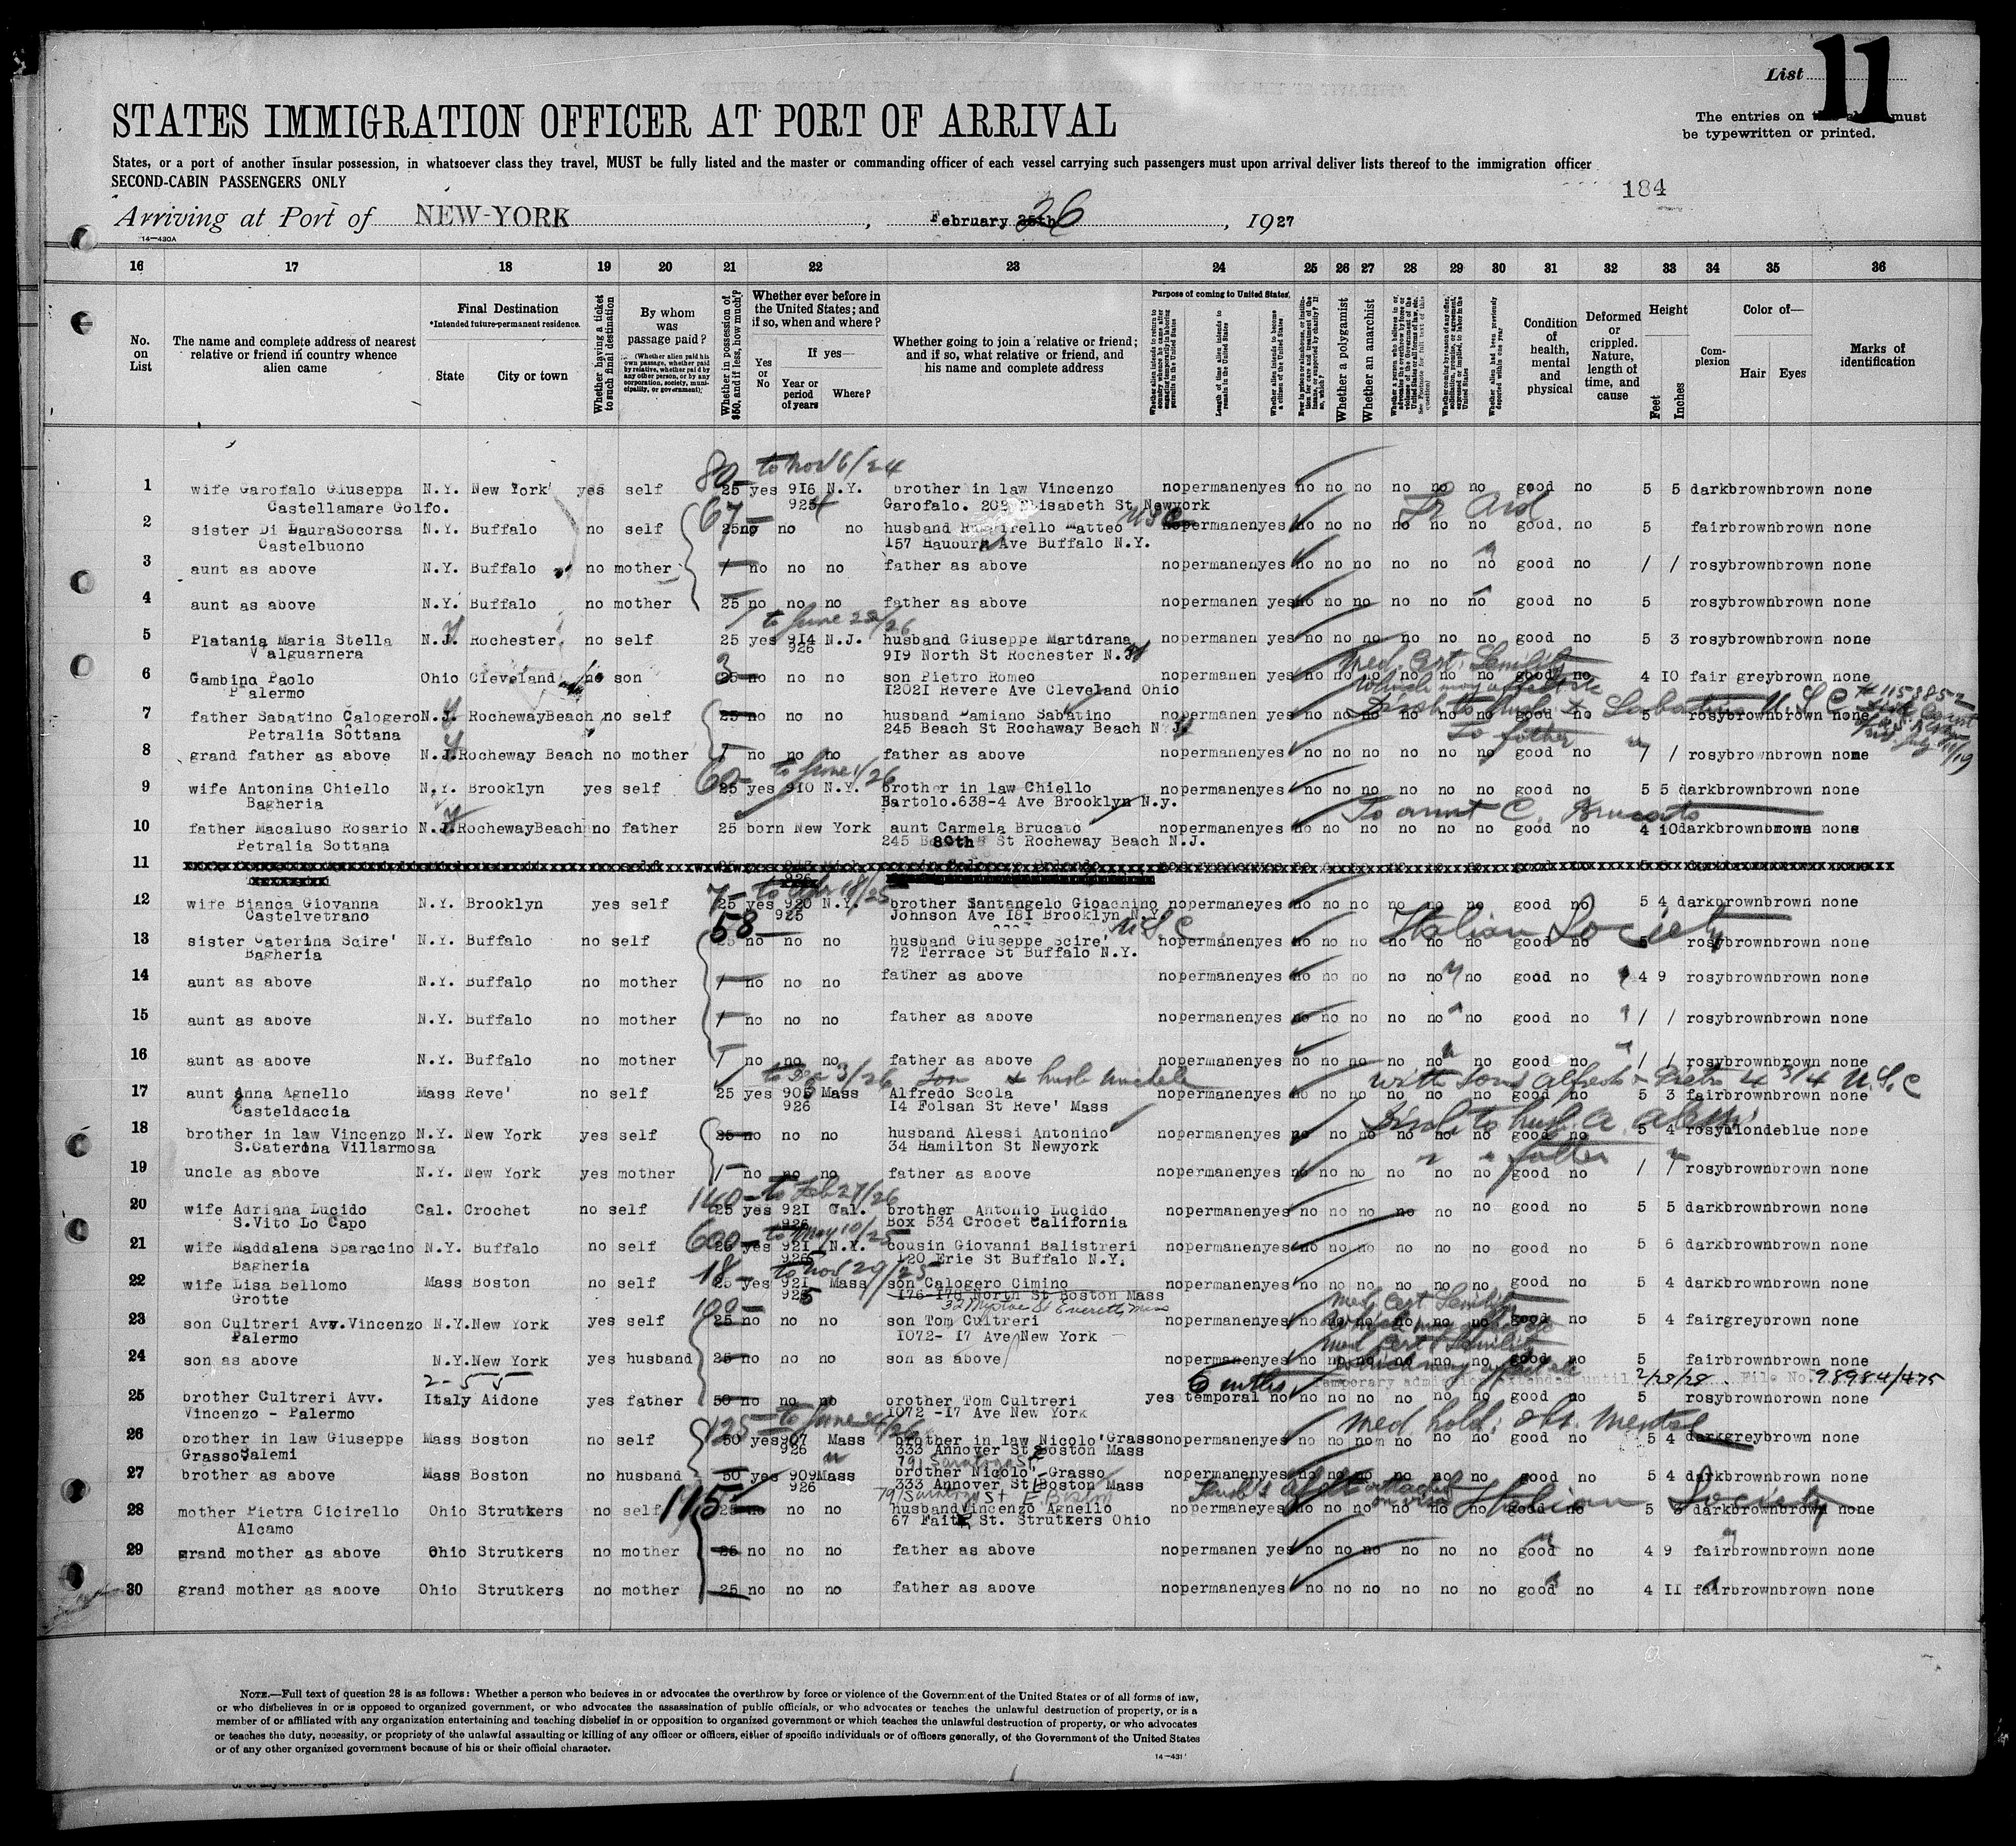 List 11
STATES IMMIGRATION OFFICER AT PORT OF ARRIVAL
The entries on must
be typewritten or printed.
States, or a port of another insular possession, in whatsoever class they travel, MUST be fully listed and the master or commanding officer of each vessel carrying such passengers must upon arrival deliver lists thereof to the immigration officer
SECOND-CABIN PASSENGERS ONLY
184
Arriving at Port of NEW-YORK, February 25th 26, 1927
14—430A
16 17 18 19 20 21 22 23 24 25 26 27 28 29 30 31 32 33 34 35 36
No. on List
The name and complete address of nearest relative or friend in country whence alien came
Final Destination
*Intended future permanent residence.
State City or town
Whether having a ticket to such final destination
By whom was passage paid?
(Whether alien paid his own passage, whether paid by relative, whether paid by any other person, or by any corporation, society, municipality, or government)
Whether in possession of $50, and if less, how much?
Whether ever before in the United States; and if so, when and where?
Yes or No
If yes—
Year or period of years Where?
Whether going to join a relative or friend; and if so, what relative or friend, and his name and complete address
Purpose of coming to United States.
Length of time alien intends to remain in the United States
Whether alien intends to become a citizen of the United States
Whether a polygamist
Whether an anarchist
Condition of health, mental and physical
Deformed or crippled. Nature, length of time, and cause
Height
Feet Inches
Complexion
Color of—
Hair Eyes
Marks of identification
80- to Nov 6/24
1 wife Garofalo Giuseppa N.Y. New York yes self 25 yes 916 N.Y. brother in law Vincenzo nopermanenyes no no no no no no good no 5 5 darkbrownbrown none
Castellamare Golfo. 924 Garofalo. 202 Elisabeth St Newyork
67-
2 sister Di LauraSocorsa N.Y. Buffalo no self 25no no no husband Matteo USC nopermanenyes no no no no no no good. no 5 fairbrownbrown none
Castelbuono 157 Ave Buffalo N.Y.
3 aunt as above N.Y. Buffalo no mother / no no no father as above nopermanenyes no no no no no no good no / / rosybrownbrown none
4 aunt as above N.Y. Buffalo no mother 25 no no no father as above nopermanen yesno no no no no no good no 5 rosybrownbrown none
to June 22/26
5 Platania Maria Stella N.J. Rochester no self 25 yes 914 N.J. husband Giuseppe Martorana nopermanen yes no no no no no no good no 5 3 rosybrownbrown none
Valguarnera 926 919 North St Rochester N.J.
med. cert. Senility
6 Gambino Paolo Ohio Cleveland no son 25 no no no son Pietro Romeo nopermanen yes no no no no no no good no 4 10 fair greybrown none
Palermo 12021 Revere Ave Cleveland Ohio
7 father Sabatino Calogero N.J. RochewayBeach no self 25 no no no husband Damiano Sabatino nopermanen yes no no no no no no good no 5 rosybrownbrown none
Petralia Sottana 245 Beach St Rochaway Beach N.J.
To father
8 grand father as above N.J. Rocheway Beach no mother / no no no father as above nopermanenyes no no no no no no good no / / rosybrownbrown none
60- to June 1/26
9 wife Antonina Chiello N.Y. Brooklyn yes self 25 yes 910 N.Y. brother in law Chiello nopermanenyes no no no no no no good no 5 5 darkbrownbrown none
Bagheria Bartolo.638-4 Ave Brooklyn N.y.
To aunt C. Brucato
10 father Macaluso Rosario N.J. RochewayBeach no father 25 born New York aunt Carmela Brucato nopermanenyes no no no no no no good no 4 10darkbrownbrown none
Petralia Sottana 245 80th St Rocheway Beach N.J.
11
7- to Apr 18/25
12 wife Bianca Giovanna N.Y. Brooklyn yes self 25 yes 920 N.Y. brother Santangelo Gioachino nopermanenyes no no no no no no good no 5 4 darkbrownbrown none
Castelvetrano 925 Johnson Ave 181 Brooklyn N.Y.
58- USC Italian Society
13 sister Caterina Scire' N.Y. Buffalo no self 25 no no no husband Giuseppe Scire' nopermanenyes no no no no no no good no 5 rosybrownbrown none
Bagheria 72 Terrace St Buffalo N.Y.
14 aunt as above N.Y. Buffalo no mother / no no no father as above nopermanenyes no no no no no no good no 4 9 rosybrownbrown none
15 aunt as above N.Y. Buffalo no mother / no no no father as above nopermanenyes no no no no no no good no / / rosybrownbrown none
16 aunt as above N.Y. Buffalo no mother / no no no father as above nopermanenyes no no no no no no good no / / rosybrownbrown none
17 aunt Anna Agnello Mass Reve' no self 25 yes 905 Mass Alfredo Scola nopermanenyes no no no no no no good no 5 3 fairbrownbrown none
Casteldaccia 926 14 Folsan St Reve' Mass
18 brother in law Vincenzo N.Y. New York yes self 25 no no no husband Alessi Antonino nopermanenyes no no no no no no good no 5 4 rosyblondeblue none
S.Caterina Villarmosa 34 Hamilton St Newyork
19 uncle as above N.Y. New York yes mother / no no no father as above nopermanenyes no no no no no no good no / / rosybrownbrown none
140- to Feb 27/26
20 wife Adriana Lucido Cal. Crochet no self 25 yes 921 Cal. brother Antonio Lucido nopermanenyes no no no no no no good no 5 5 darkbrownbrown none
S.Vito Lo Capo 926 Box 534 Crocet California
600- to May 10/25
21 wife Maddalena Sparacino N.Y. Buffalo no self 25 yes 921 N.Y. cousin Giovanni Balistreri nopermanenyes no no no no no no good no 5 6 darkbrownbrown none
Bagheria 925 120 Erie St Buffalo N.Y.
18- to Nov 29/25
22 wife Lisa Bellomo Mass Boston no self 25 yes 921 Mass son Calogero Cimino nopermanenyes no no no no no no good no 5 4 darkbrownbrown none
Grotte 925 176-178 North St Boston Mass
100- med cert Senility
23 son Cultreri Avv.Vincenzo N.Y.New York yes self 25 no no no son Tom Cultreri nopermanenyes no no no no no no good no 5 4 fairgreybrown none
Palermo 1072- 17 Ave New York
med cert Senility
24 son as above N.Y.New York yes husband 25 no no no son as above nopermanenyes no no no no no no good no 5 fairbrownbrown none
2-55 6 mths temporary admission extended until 2/28/28 File No. 98984/475
25 brother Cultreri Avv. Italy Aidone yes father 50 no no no brother Tom Cultreri yes temporal no no no no no no no good no 5 rosybrownbrown none
Vincenzo - Palermo 1072 -17 Ave New York
125- med hold: obs. mental
26 brother in law Giuseppe Mass Boston no self 50 yes907 Mass brother in law Nicolo'Grasso nopermanenyes no no no no no no good no 5 4 darkgreybrown none
GrassoSalemi 926 333 Annover St Boston Mass
27 brother as above Mass Boston no husband 50 yes 909Mass brother Nicolo' Grasso nopermanenyes no no no no no no good no 5 4 darkbrownbrown none
926 333 Annover St Boston Mass
115 Italian Society
28 mother Pietra Cicirello Ohio Strutkers no self 25 no no no husbandVincenzo Agnello nopermanenyes no no no no no no good no 5 3 darkbrownbrown none
Alcamo 67 Faith St. Strutkers Ohio
29 grand mother as above Ohio Strutkers no mother 25 no no no father as above nopermanen yes no no no no no no good no 4 9 fairbrownbrown none
30 grand mother as above Ohio Strutkers no mother 25 no no no father as above nopermanenyes no no no no no no good no 4 11 fairbrownbrown none
NOTE.—Full text of question 28 is as follows: Whether a person who believes in or advocates the overthrow by force or violence of the Government of the United States or of all forms of law,
or who disbelieves in or is opposed to organized government, or who advocates the assassination of public officials, or who advocates or teaches the unlawful destruction of property, or is a
member of or affiliated with any organization entertaining and teaching disbelief in or opposition to organized government or which teaches the unlawful destruction of property, or who advocates
or teaches the duty, necessity, or propriety of the unlawful assaulting or killing of any officer or officers, either of specific individuals or of officers generally, of the Government of the United States
or of any other organized government because of his or their official character.
14—431